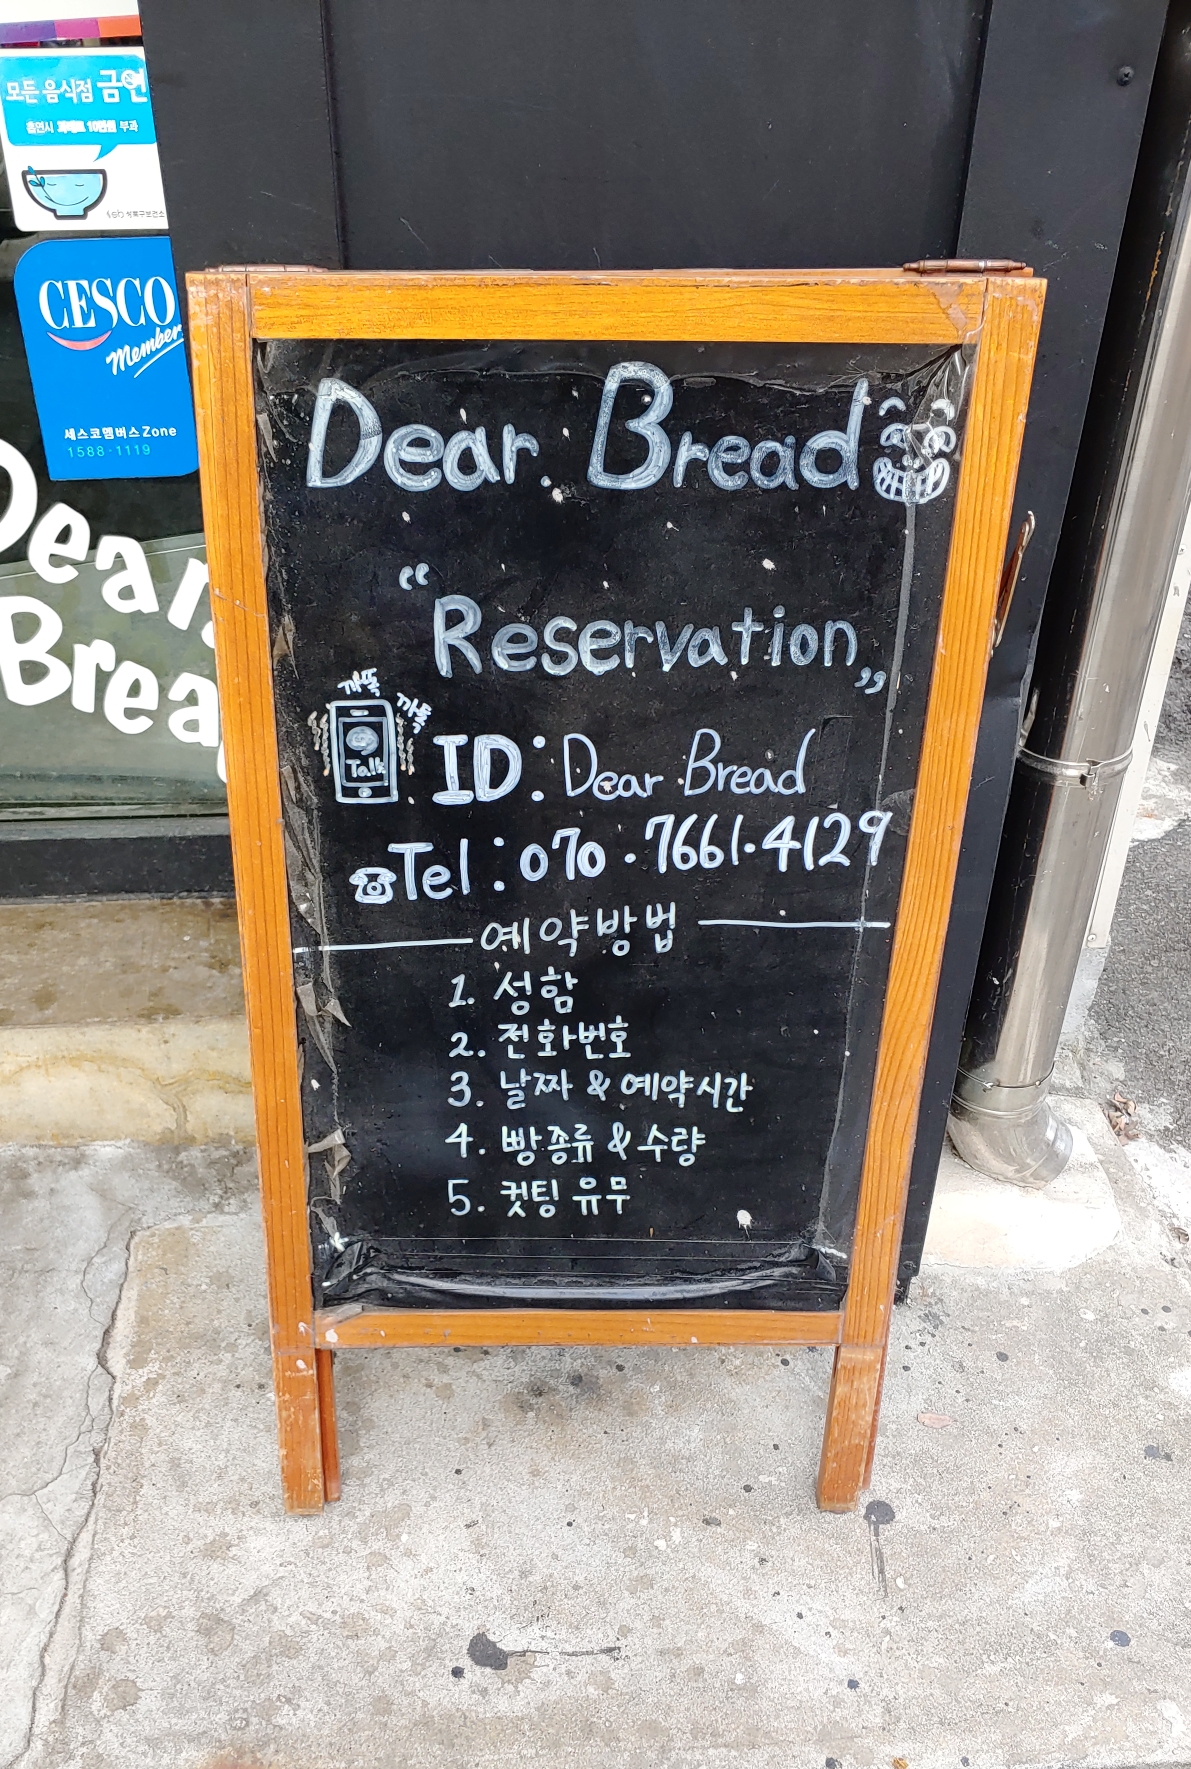 모든 음식점 금연
흡연시 과태료 10만원 부과
성북구보건소
CESCO
Member
세스코멤버스 Zone
1588-1119
Dear.
Brea
Dear. Bread
“Reservation„
까똑
까톡
Talk
ID: Dear Bread
Tel: 070.7661.4129
예약방법
1. 성함
2. 전화번호
3. 날짜 & 예약시간
4. 빵종류 & 수량
5. 컷팅 유무